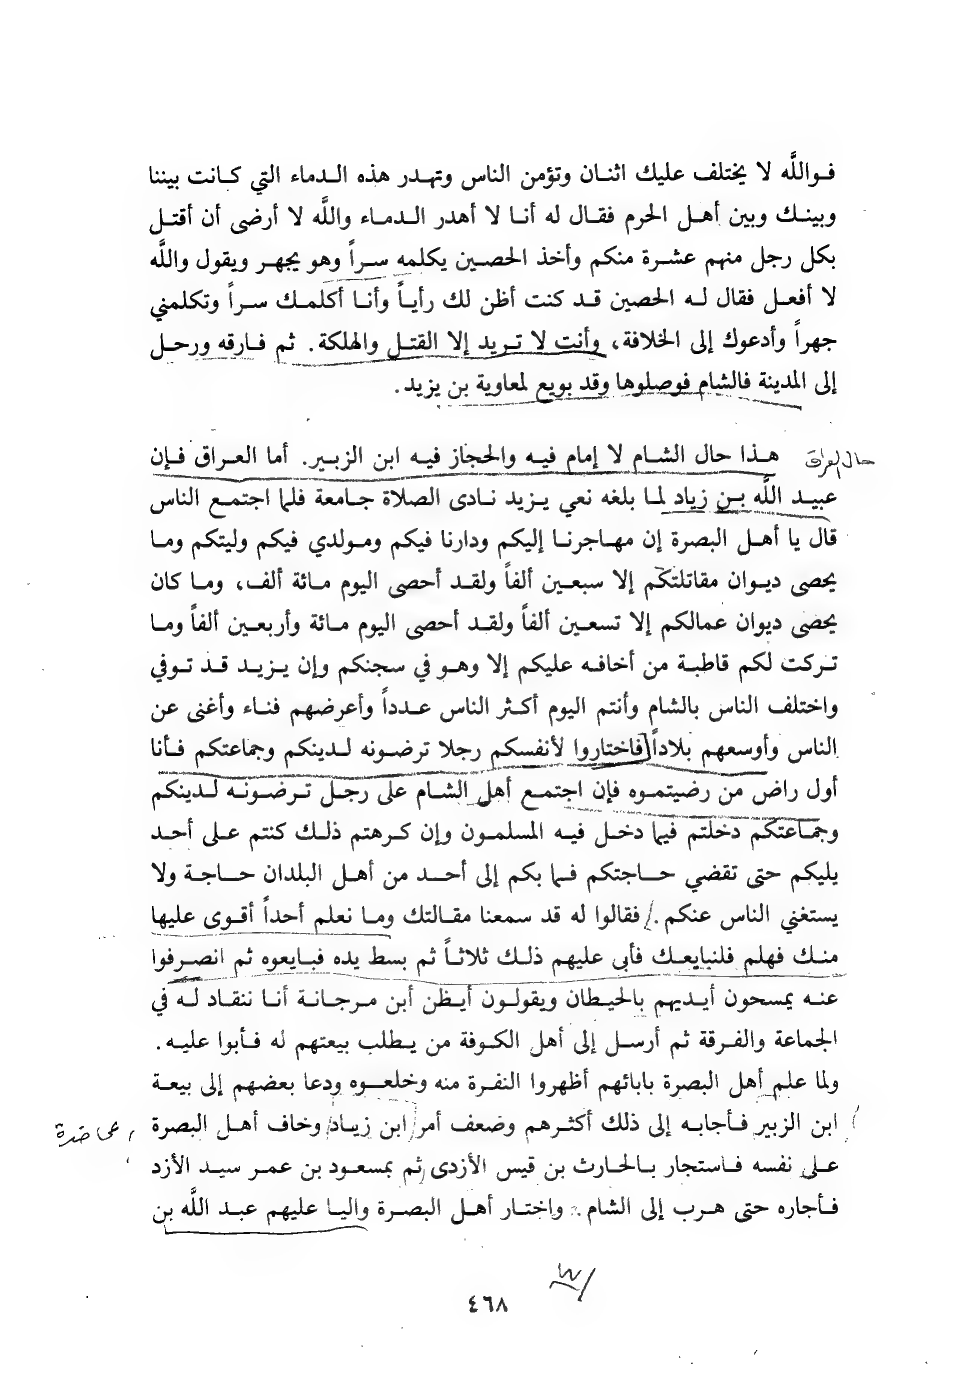 فوالله لا يختلف عليك اثنان وتؤمن الناس وتهدر هذه الدماء التي كانت بيننا
وبينك وبين أهل الحرم فقال له أنا لا أهدر الدماء والله لا أرضى أن أقتل
بكل رجل منهم عشرة منكم وأخذ الحصين يكلمه سراً وهو يجهر ويقول والله
لا أفعل فقال له الحصين قد كنت أظن لك رأياً وأنا أكلمك سراً وتكلمني
جهراً وأدعوك إلى الخلافة، وأنت لا تريد إلا القتل والهلكة. ثم فارقه ورحل
إلى المدينة فالشام فوصلوها وقد بويع لمعاوية بن يزيد.
حال العراق
هذا حال الشام لا إمام فيه والحجاز فيه ابن الزبير. أما العراق فإن
عبيد الله بن زياد لما بلغه نعي يزيد نادى الصلاة جامعة فلما اجتمع الناس
قال يا أهل البصرة إن مهاجرنا إليكم ودارنا فيكم ومولدي فيكم وليتكم وما
يحصى ديوان مقاتلتكم إلا سبعين ألفاً ولقد أحصى اليوم مائة ألف، وما كان
يحصى ديوان عمالكم إلا تسعين ألفاً ولقد أحصى اليوم مائة وأربعين ألفاً وما
تركت لكم قاطبة من أخافه عليكم إلا وهو في سجنكم وإن يزيد قد توفي
واختلف الناس بالشام وأنتم اليوم أكثر الناس عدداً وأعرضهم فناء وأغنى عن
الناس وأوسعهم بلاداً فاختاروا لأنفسكم رجلا ترضونه لدينكم وجماعتكم فأنا
أول راض من رضيتموه فإن اجتمع أهل الشام على رجل ترضونه لدينكم
وجماعتكم دخلتم فيما دخل فيه المسلمون وإن كرهتم ذلك كنتم على أحد
يليكم حتى تقضي حاجتكم فما بكم إلى أحد من أهل البلدان حاجة ولا
يستغني الناس عنكم. فقالوا له قد سمعنا مقالتك وما نعلم أحداً أقوى عليها
منك فهلم فلنبايعك فأبى عليهم ذلك ثلاثاً ثم بسط يده فبايعوه ثم انصرفوا
عنه يمسحون أيديهم بالحيطان ويقولون أيظن أبن مرجانة أنا ننقاد له في
الجماعة والفرقة ثم أرسل إلى أهل الكوفة من يطلب بيعتهم له فأبوا عليه.
ولما علم أهل البصرة بابائهم أظهروا النفرة منه وخلعوه ودعا بعضهم إلى بيعة
ابن الزبير فأجابه إلى ذلك أكثرهم وضعف أمر ابن زياد وخاف أهل البصرة
على نفسه فاستجار بالحارث بن قيس الأزدى ثم بمسعود بن عمر سيد الأزد
فأجاره حتى هرب إلى الشام. واختار أهل البصرة واليا عليهم عبد الله بن
٤٦٨